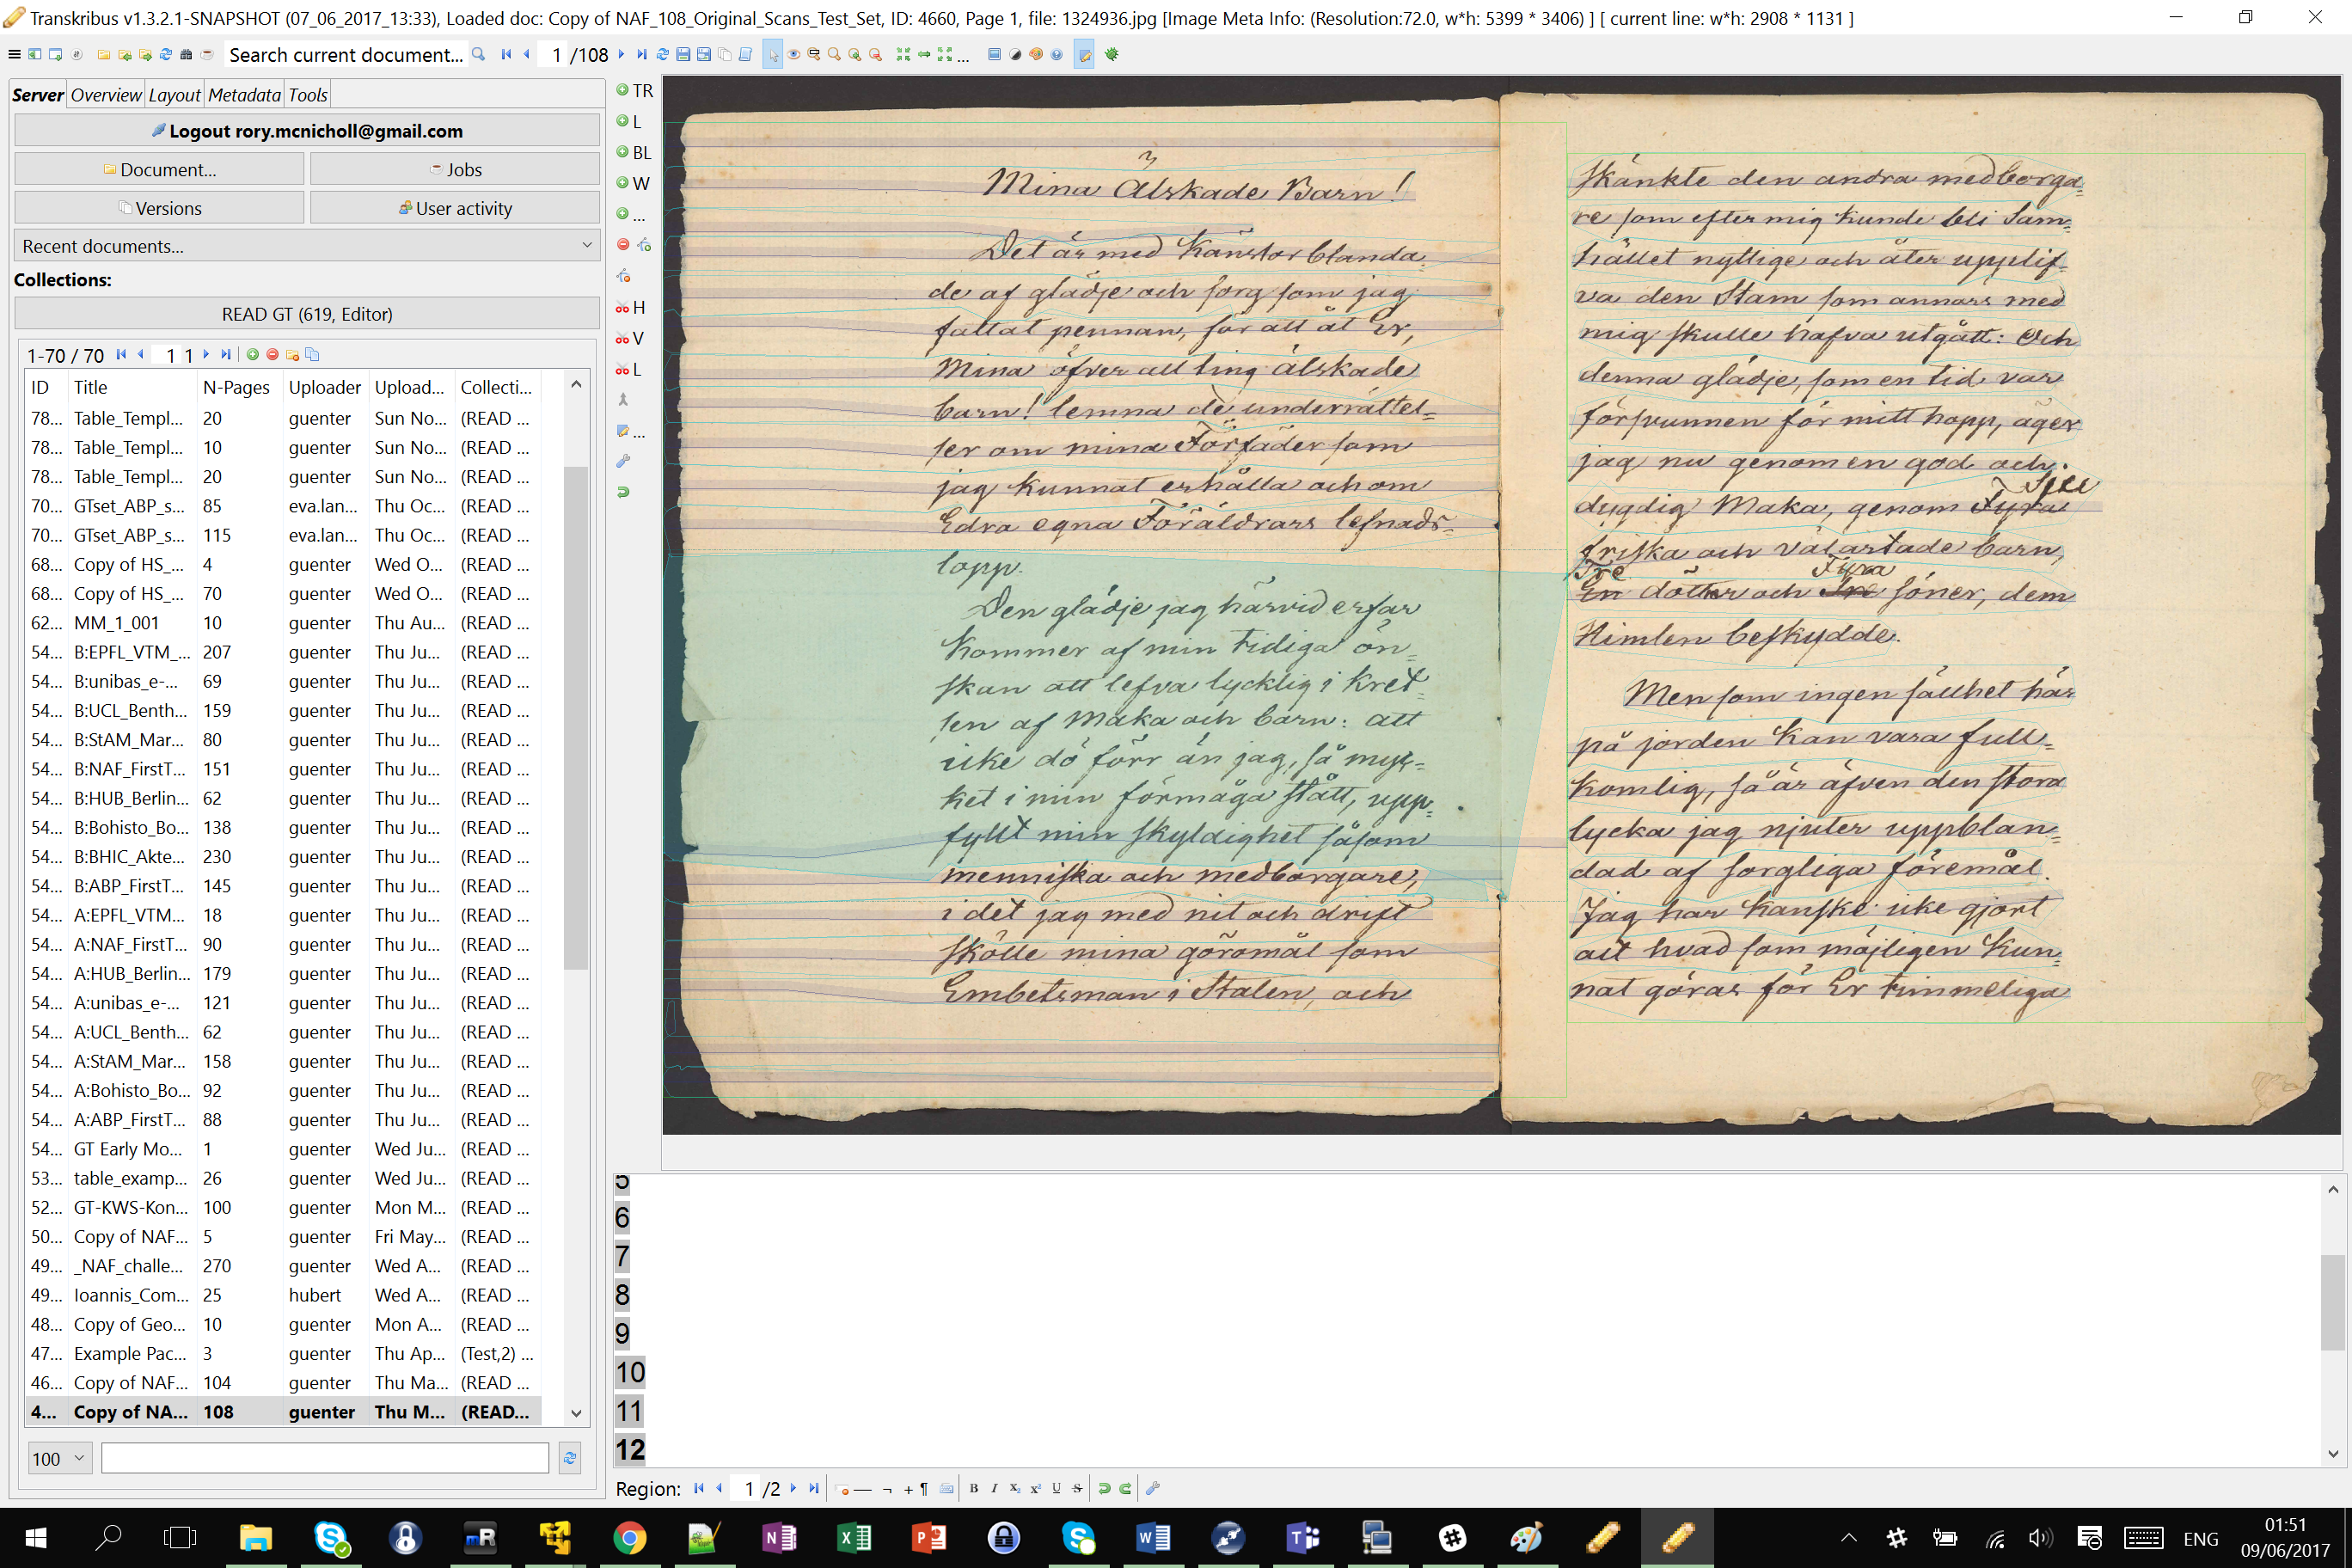 Transkribus v1.3.2.1-SNAPSHOT (07_06_2017_13:33), Loaded doc: Copy of NAF_108_Original_Scans_Test_Set, ID: 4660, Page 1, file: 1324936.jpg [Image Meta Info: (Resolution:72.0, w*h: 5399 * 3406) ] [ current line: w*h: 2908 * 1131 ]
Search current document... 1 /108 ...
Server Overview Layout Metadata Tools
Logout rory.mcnicholl@gmail.com
Document... Jobs
Versions User activity
Recent documents...
Collections:
READ GT (619, Editor)
1-70 / 70 1 1
ID Title N-Pages Uploader Upload... Collecti...
78... Table_Templ... 20 guenter Sun No... (READ ...
78... Table_Templ... 10 guenter Sun No... (READ ...
78... Table_Templ... 20 guenter Sun No... (READ ...
70... GTset_ABP_s... 85 eva.lan... Thu Oc... (READ ...
70... GTset_ABP_s... 115 eva.lan... Thu Oc... (READ ...
68... Copy of HS_... 4 guenter Wed O... (READ ...
68... Copy of HS_... 70 guenter Wed O... (READ ...
62... MM_1_001 10 guenter Thu Au... (READ ...
54... B:EPFL_VTM_... 207 guenter Thu Ju... (READ ...
54... B:unibas_e-... 69 guenter Thu Ju... (READ ...
54... B:UCL_Benth... 159 guenter Thu Ju... (READ ...
54... B:StAM_Mar... 80 guenter Thu Ju... (READ ...
54... B:NAF_FirstT... 151 guenter Thu Ju... (READ ...
54... B:HUB_Berlin... 62 guenter Thu Ju... (READ ...
54... B:Bohisto_Bo... 138 guenter Thu Ju... (READ ...
54... B:BHIC_Akte... 230 guenter Thu Ju... (READ ...
54... B:ABP_FirstT... 145 guenter Thu Ju... (READ ...
54... A:EPFL_VTM... 18 guenter Thu Ju... (READ ...
54... A:NAF_FirstT... 90 guenter Thu Ju... (READ ...
54... A:HUB_Berlin... 179 guenter Thu Ju... (READ ...
54... A:unibas_e-... 121 guenter Thu Ju... (READ ...
54... A:UCL_Benth... 62 guenter Thu Ju... (READ ...
54... A:StAM_Mar... 158 guenter Thu Ju... (READ ...
54... A:Bohisto_Bo... 92 guenter Thu Ju... (READ ...
54... A:ABP_FirstT... 88 guenter Thu Ju... (READ ...
54... GT Early Mo... 1 guenter Wed Ju... (READ ...
53... table_examp... 26 guenter Wed Ju... (READ ...
52... GT-KWS-Kon... 100 guenter Mon M... (READ ...
50... Copy of NAF... 5 guenter Fri May... (READ ...
49... _NAF_challe... 270 guenter Wed A... (READ ...
49... Ioannis_Com... 25 hubert Wed A... (READ ...
48... Copy of Geo... 10 guenter Mon A... (READ ...
47... Example Pac... 3 guenter Thu Ap... (Test,2) ...
46... Copy of NAF... 104 guenter Thu Ma... (READ ...
4... Copy of NA... 108 guenter Thu M... (READ...
100
TR
L
BL
W
...
H
V
L
...
Mina Älskade Barn!
Det är med Känslor blanda
de af glädje och sorg som jag
fattat pennan, för att åt Er,
Mina öfver all ting älskade
barn! lemna de underrättel=
ser om mina Förfäder som
jag kunnat erhålla och om
Edra egna Föräldrars lefnads=
lopp.
Den glädje jag härvid erfar
kommer af min tidiga ön=
skan att lefva lycklig i Kret=
sen af Maka och barn: att
icke dö förr än jag, så myc=
ket i min förmåga stått, upp=
fyllt min skyldighet såsom
menniska och medborgare,
i det jag med nit och drift
skötte mina göromål som
Embetsman i Staten, och
skänkte den andra medborga=
re som efter mig kunde bli Sam=
hället nyttige och åter upplif=
va den Stam som annars med
mig skulle hafva utgått: Och
denna glädje, som en tid var
försvunnen för mitt hopp, äger
jag nu genom en god och
dygdig Maka, genom Fyra
friska och välartade barn,
Tre Fyra
En dötter och Tre söner, dem
Himlen beskydde.
Men som ingen sällhet här
på jorden kan vara full=
komlig, så är äfven den stora
lycka jag njuter uppblan=
dad af sorgliga föremål.
Jag har kanske icke gjort
allt hvad som möjligen kun=
nat göras för Er timmeliga
5
6
7
8
9
10
11
12
Region: 1 /2
ENG
01:51
09/06/2017